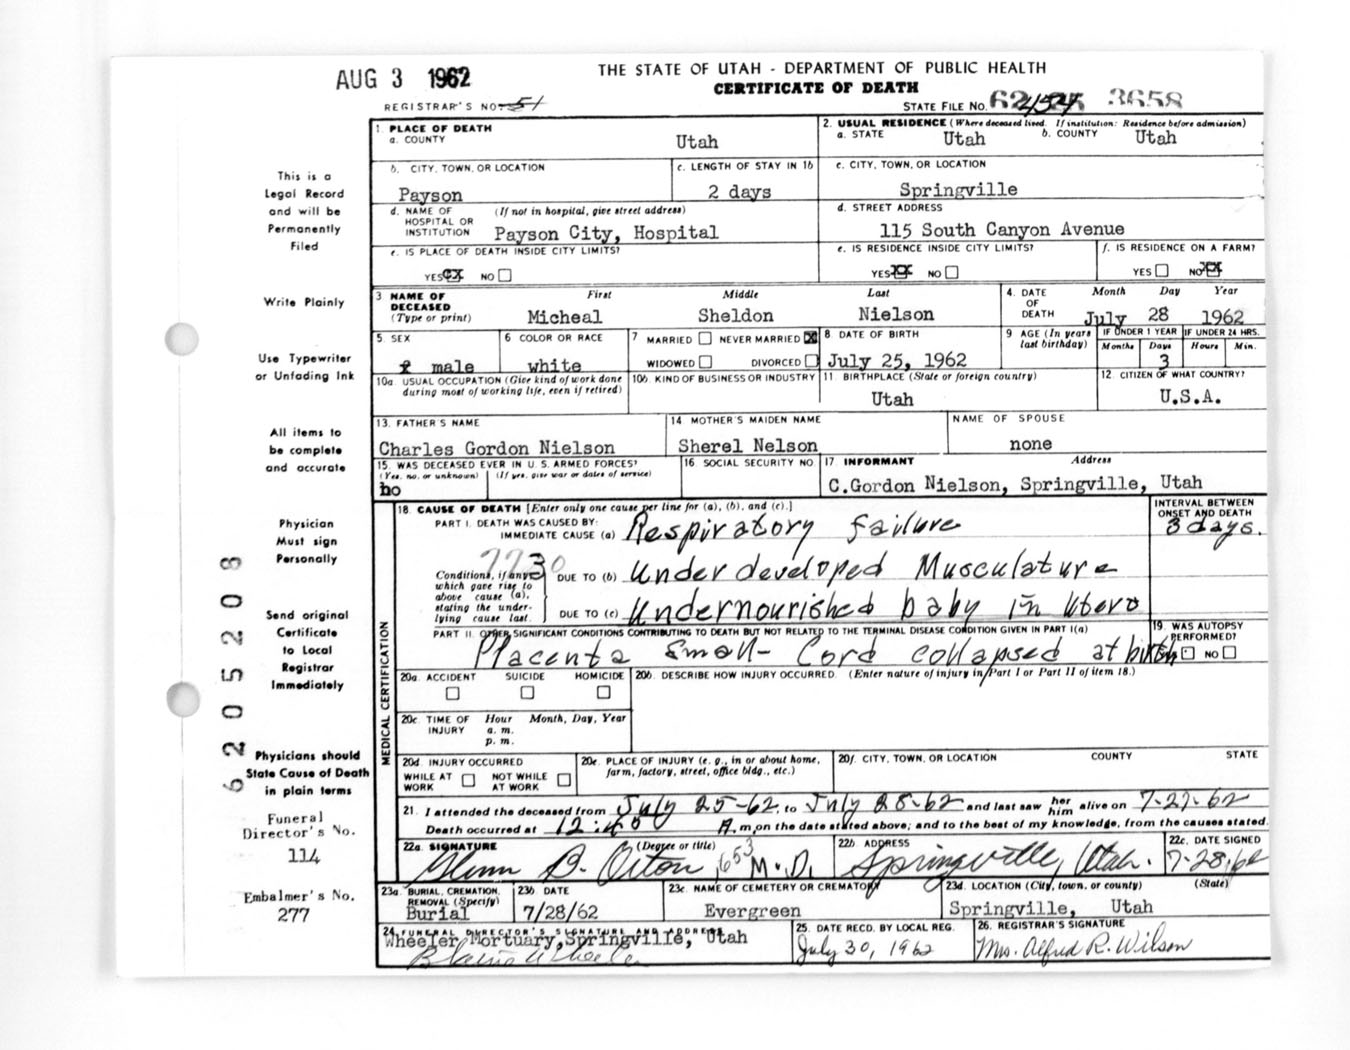 AUG 3 1962
THE STATE OF UTAH - DEPARTMENT OF PUBLIC HEALTH
CERTIFICATE OF DEATH
REGISTRAR'S NO. 51
STATE FILE NO. 62 3658
1. PLACE OF DEATH
a. COUNTY Utah
2. USUAL RESIDENCE (Where deceased lived. If institution: Residence before admission)
a. STATE Utah b. COUNTY Utah
b. CITY, TOWN, OR LOCATION Payson
c. LENGTH OF STAY IN 1b 2 days
c. CITY, TOWN, OR LOCATION Springville
d. NAME OF HOSPITAL OR INSTITUTION (If not in hospital, give street address) Payson City, Hospital
d. STREET ADDRESS 115 South Canyon Avenue
e. IS PLACE OF DEATH INSIDE CITY LIMITS?
YES NO
e. IS RESIDENCE INSIDE CITY LIMITS?
YES NO
f. IS RESIDENCE ON A FARM?
YES NO
3 NAME OF DECEASED (Type or print)
First Middle Last
Micheal Sheldon Nielson
4. DATE OF DEATH Month Day Year
July 28 1962
5. SEX male
6 COLOR OR RACE white
7 MARRIED NEVER MARRIED
WIDOWED DIVORCED
8. DATE OF BIRTH July 25, 1962
9 AGE (In years last birthday)
IF UNDER 1 YEAR Months Days 3
IF UNDER 24 HRS. Hours Min.
10a. USUAL OCCUPATION (Give kind of work done during most of working life, even if retired)
10b. KIND OF BUSINESS OR INDUSTRY
11 BIRTHPLACE (State or foreign country) Utah
12. CITIZEN OF WHAT COUNTRY? U.S.A.
13. FATHER'S NAME Charles Gordon Nielson
14 MOTHER'S MAIDEN NAME Sherel Nelson
NAME OF SPOUSE none
15. WAS DECEASED EVER IN U.S. ARMED FORCES?
(Yes, no, or unknown) (If yes, give war or dates of service)
no
16 SOCIAL SECURITY NO.
17 INFORMANT Address
C.Gordon Nielson, Springville, Utah
18. CAUSE OF DEATH [Enter only one cause per line for (a), (b), and (c).]
PART I. DEATH WAS CAUSED BY:
IMMEDIATE CAUSE (a) Respiratory failure
INTERVAL BETWEEN ONSET AND DEATH
3 days.
7730
Conditions, if any, which gave rise to above cause (a), stating the underlying cause last.
DUE TO (b) Under developed Musculature
DUE TO (c) Undernourished baby in Utero
PART II. OTHER SIGNIFICANT CONDITIONS CONTRIBUTING TO DEATH BUT NOT RELATED TO THE TERMINAL DISEASE CONDITION GIVEN IN PART I(a)
Placenta small - Cord collapsed at birth
19. WAS AUTOPSY PERFORMED?
NO
20a. ACCIDENT SUICIDE HOMICIDE
20b. DESCRIBE HOW INJURY OCCURRED. (Enter nature of injury in Part I or Part II of item 18.)
20c. TIME OF INJURY Hour Month, Day, Year
a. m.
p. m.
20d. INJURY OCCURRED
WHILE AT WORK NOT WHILE AT WORK
20e. PLACE OF INJURY (e. g., in or about home, farm, factory, street, office bldg., etc.)
20f. CITY, TOWN, OR LOCATION COUNTY STATE
21. I attended the deceased from July 25-62, to July 28-62 and last saw her him alive on 7-27-62
Death occurred at 12:40 A. m on the date stated above; and to the best of my knowledge, from the causes stated.
22a. SIGNATURE (Degree or title)
Glenn B. Orton, 653 M.D.
22b. ADDRESS Springville, Utah.
22c. DATE SIGNED 7-28-62
23a. BURIAL, CREMATION, REMOVAL (Specify) Burial
23b. DATE 7/28/62
23c. NAME OF CEMETERY OR CREMATORY Evergreen
23d. LOCATION (City, town, or county) (State)
Springville, Utah
24. FUNERAL DIRECTOR'S SIGNATURE AND ADDRESS
Wheeler Mortuary, Springville, Utah
Blaine Wheeler
25. DATE RECD. BY LOCAL REG. July 30, 1962
26. REGISTRAR'S SIGNATURE Mrs. Alfred R. Wilson
MEDICAL CERTIFICATION
This is a
Legal Record
and will be
Permanently
Filed
Write Plainly
Use Typewriter
or Unfading Ink
All items to
be complete
and accurate
Physician
Must sign
Personally
Send original
Certificate
to Local
Registrar
Immediately
Physicians should
State Cause of Death
in plain terms
Funeral
Director's No.
114
Embalmer's No.
277
62 05 2 08